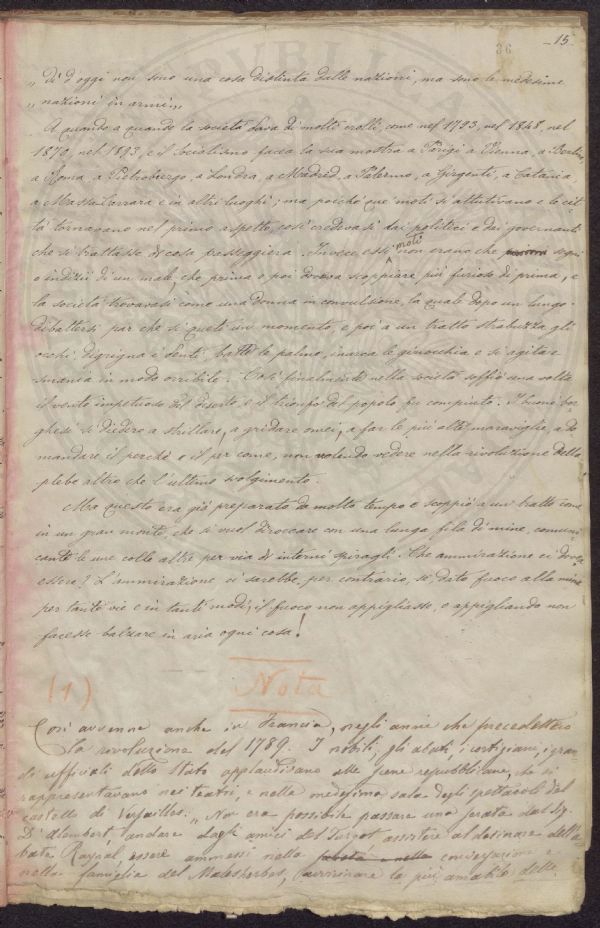 - 15
36
„ di d'oggi non sono una cosa distinta dalle nazioni, ma sono le medesime
„ nazioni in armi „
A quando a quando la società dava di molti crolli, come nel 1793, nel 1848, nel
1870, nel 1893, e il Socialismo facea la sua mostra a Parigi a Vienna, a Berlino,
a Roma, a Pietroburgo, a Londra, a Madrid, a Palermo, a Girgenti, a Catania
a Massa Carrara e in altri luoghi; ma poichè que' moti si attutivano e le cit-
tà tornavano nel primo aspetto, così credevasi dai politici e dai governanti
che si trattasse di cosa passeggiera. Invece essi moti non erano che segni
e indizii di un male, che prima o poi doveva scoppiare più furioso di prima, e
la società trovavasi come una donna in convulsione, la quale dopo un lungo
dibattersi par che si queti un momento, e poi a un tratto strabuzza gli
occhi, digrigna i denti, batte le palme, inarca le ginocchia e si agita e
smania in modo orribile. Così finalmente nella società soffiò una volta
il vento impetuoso del deserto e il trionfo del popolo fu compiuto. I buoni bor-
ghesi si diedero a strillare, a gridare omei, a far le più alte maraviglie, a do
mandare il perchè e il per come, non volendo vedere nella rivoluzione della
plebe altro che l'ultimo svolgimento.
Ma questo era già preparato da molto tempo e scoppiò a un tratto come
in un gran monte, che si vuol diroccare con una lunga fila di mine, comuni-
canti le une colle altre per via di interni spiragli. Che ammirazione ci dovea
essere? L'ammirazione ci sarebbe, per contrario, se, dato fuoco alla mine
per tante vie e in tanti modi, il fuoco non appigliasse, o appigliando non
facesse balzare in aria ogni cosa!
(1) Nota
Così avvenne anche in Francia, negli anni che precedettero
la rivoluzione del 1789. I nobili, gli abati, i cortigiani, i gran-
di ufficiali dello Stato applaudivano alle scene repubblicane, che si
rappresentavano nei teatri, e nella medesima sala degli spettacoli del
castello di Versailles. „ Non era possibile passare una serata dal Sig.
D'Alembert, andare dagli amici del Turgot assistere al desinare dell'a
bate Raynal, essere ammessi nella società e nella conversazione e
nella famiglia del Malesherbes, avvicinare la più amabile delle